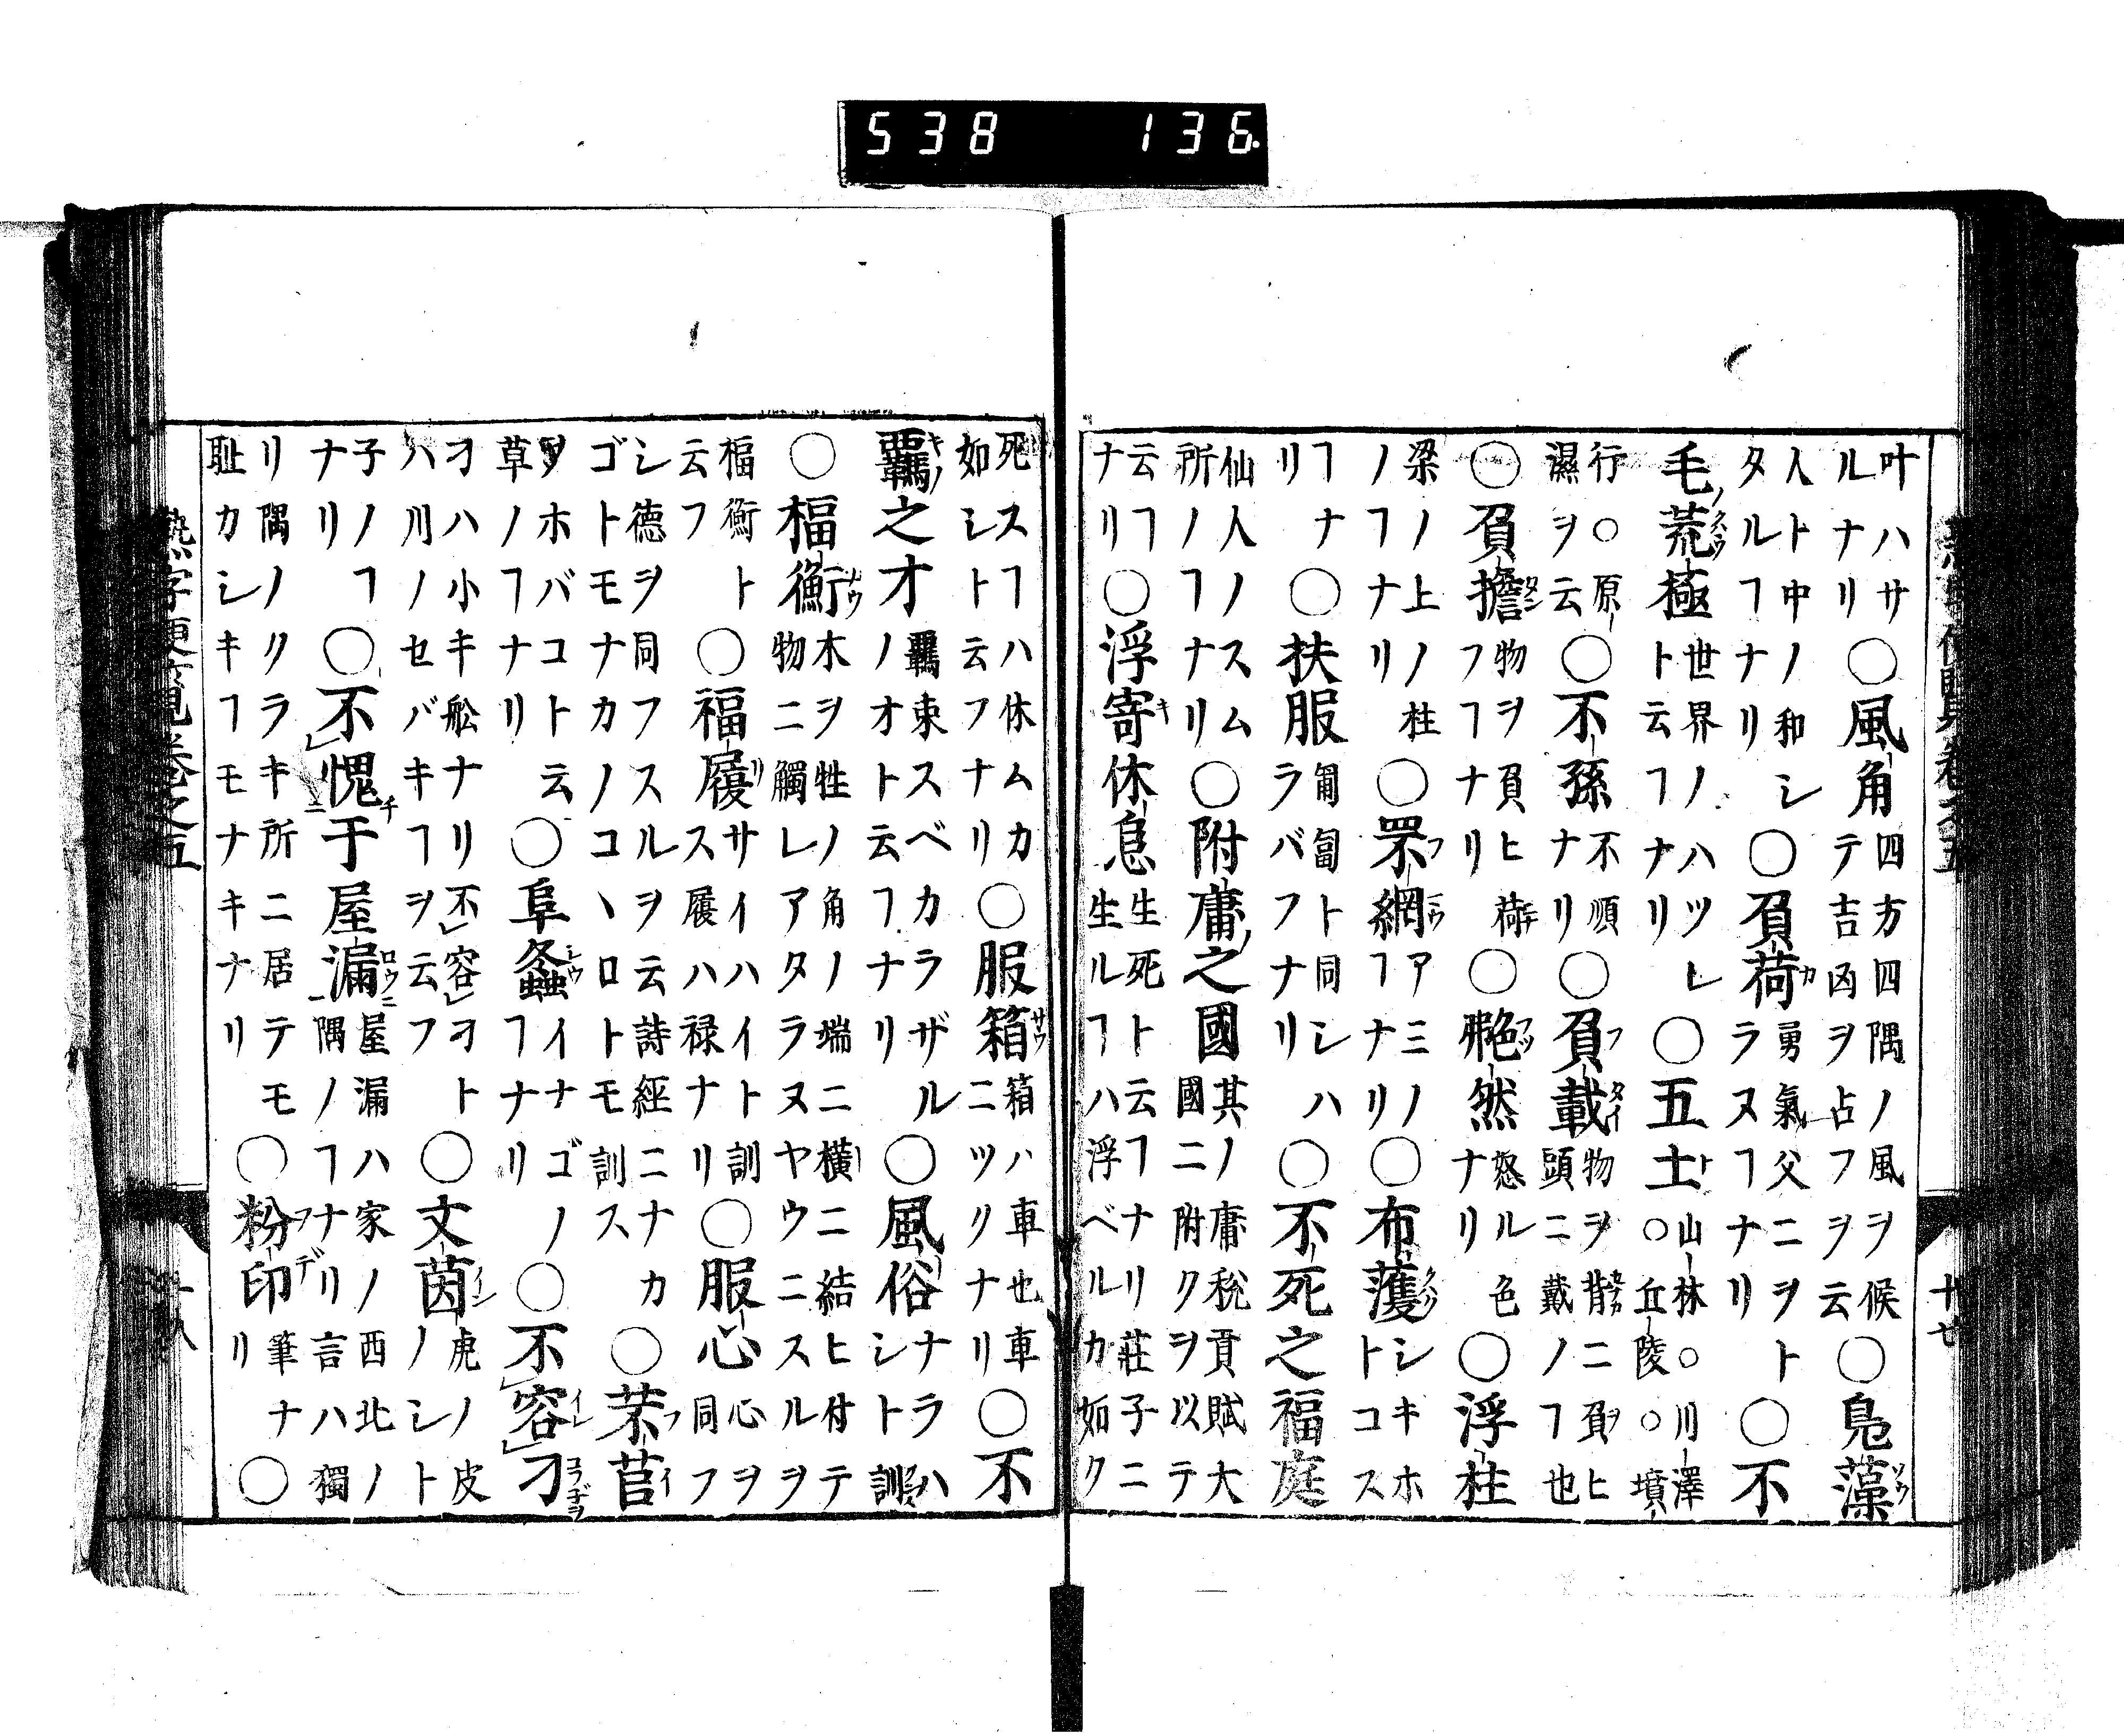 538 136
叶ハサルナリ○風角四方四隅ノ風ヲ候テ吉凶ヲ占フヲ云○鳧藻
人ト中ノ和シタルヿナリ○負荷勇氣父ニヲトラヌヿナリ○不
毛荒極世界ノハツレト云フヿナリ○五土山林○川澤○丘陵○墳
行○原濕ヲ云○不孫不順ナリ○負載物ヲ背ニ負ヒ頭ニ戴ノヿ也
○負擔物ヲ負ヒ荷フヿナリ○艴然怒ル色ナリ○浮柱
梁ノ上ノ柱ノヿナリ○罘網アミノヿナリ○布護シキホトコス
ヿナリ○扶服匍匐ト同シハラバフナリ○不死之福庭
仙人ノスム所ノヿナリ○附庸之國其ノ庸税貢賦大國ニ附クヲ以テ
云ヿナリ○浮寄休息生死ト云ヿナリ莊子ニ生ルヿハ浮ベルカ如ク
死スヿハ休ムカ如シト云フナリ○服箱箱ハ車也車ニツクナリ○不
羈之才羈束スベカラザルノオト云ヿナリ○風俗ナラハシト訓
○楅衡木ヲ牲ノ角ノ端ニ横ニ結ヒ付テ物ニ觸レアタラヌヤウニスルヲ
楅衡ト云フ○福履サイハイト訓ス履ハ禄ナリ○服心心ヲ同フ
シ德ヲ同フスルヲ云詩經ニナカゴトモナカノコヽロトモ訓ス○芣苢
ヲホバコト云草ノヿナリ○阜螽イナゴノヿナリ○不容刀
オハ小キ舩ナリ不容オトハ川ノセバキヿヲ云フ○文茵虎ノ皮ノシト
子ノヿナリ○不愧于屋漏屋漏ハ家ノ西北ノ隅ノヿナリ言ハ獨
リ隅ノクラキ所ニ居テモ耻カシキヿモナキナリ○粉印筆ナリ○
熟字便覧卷之五